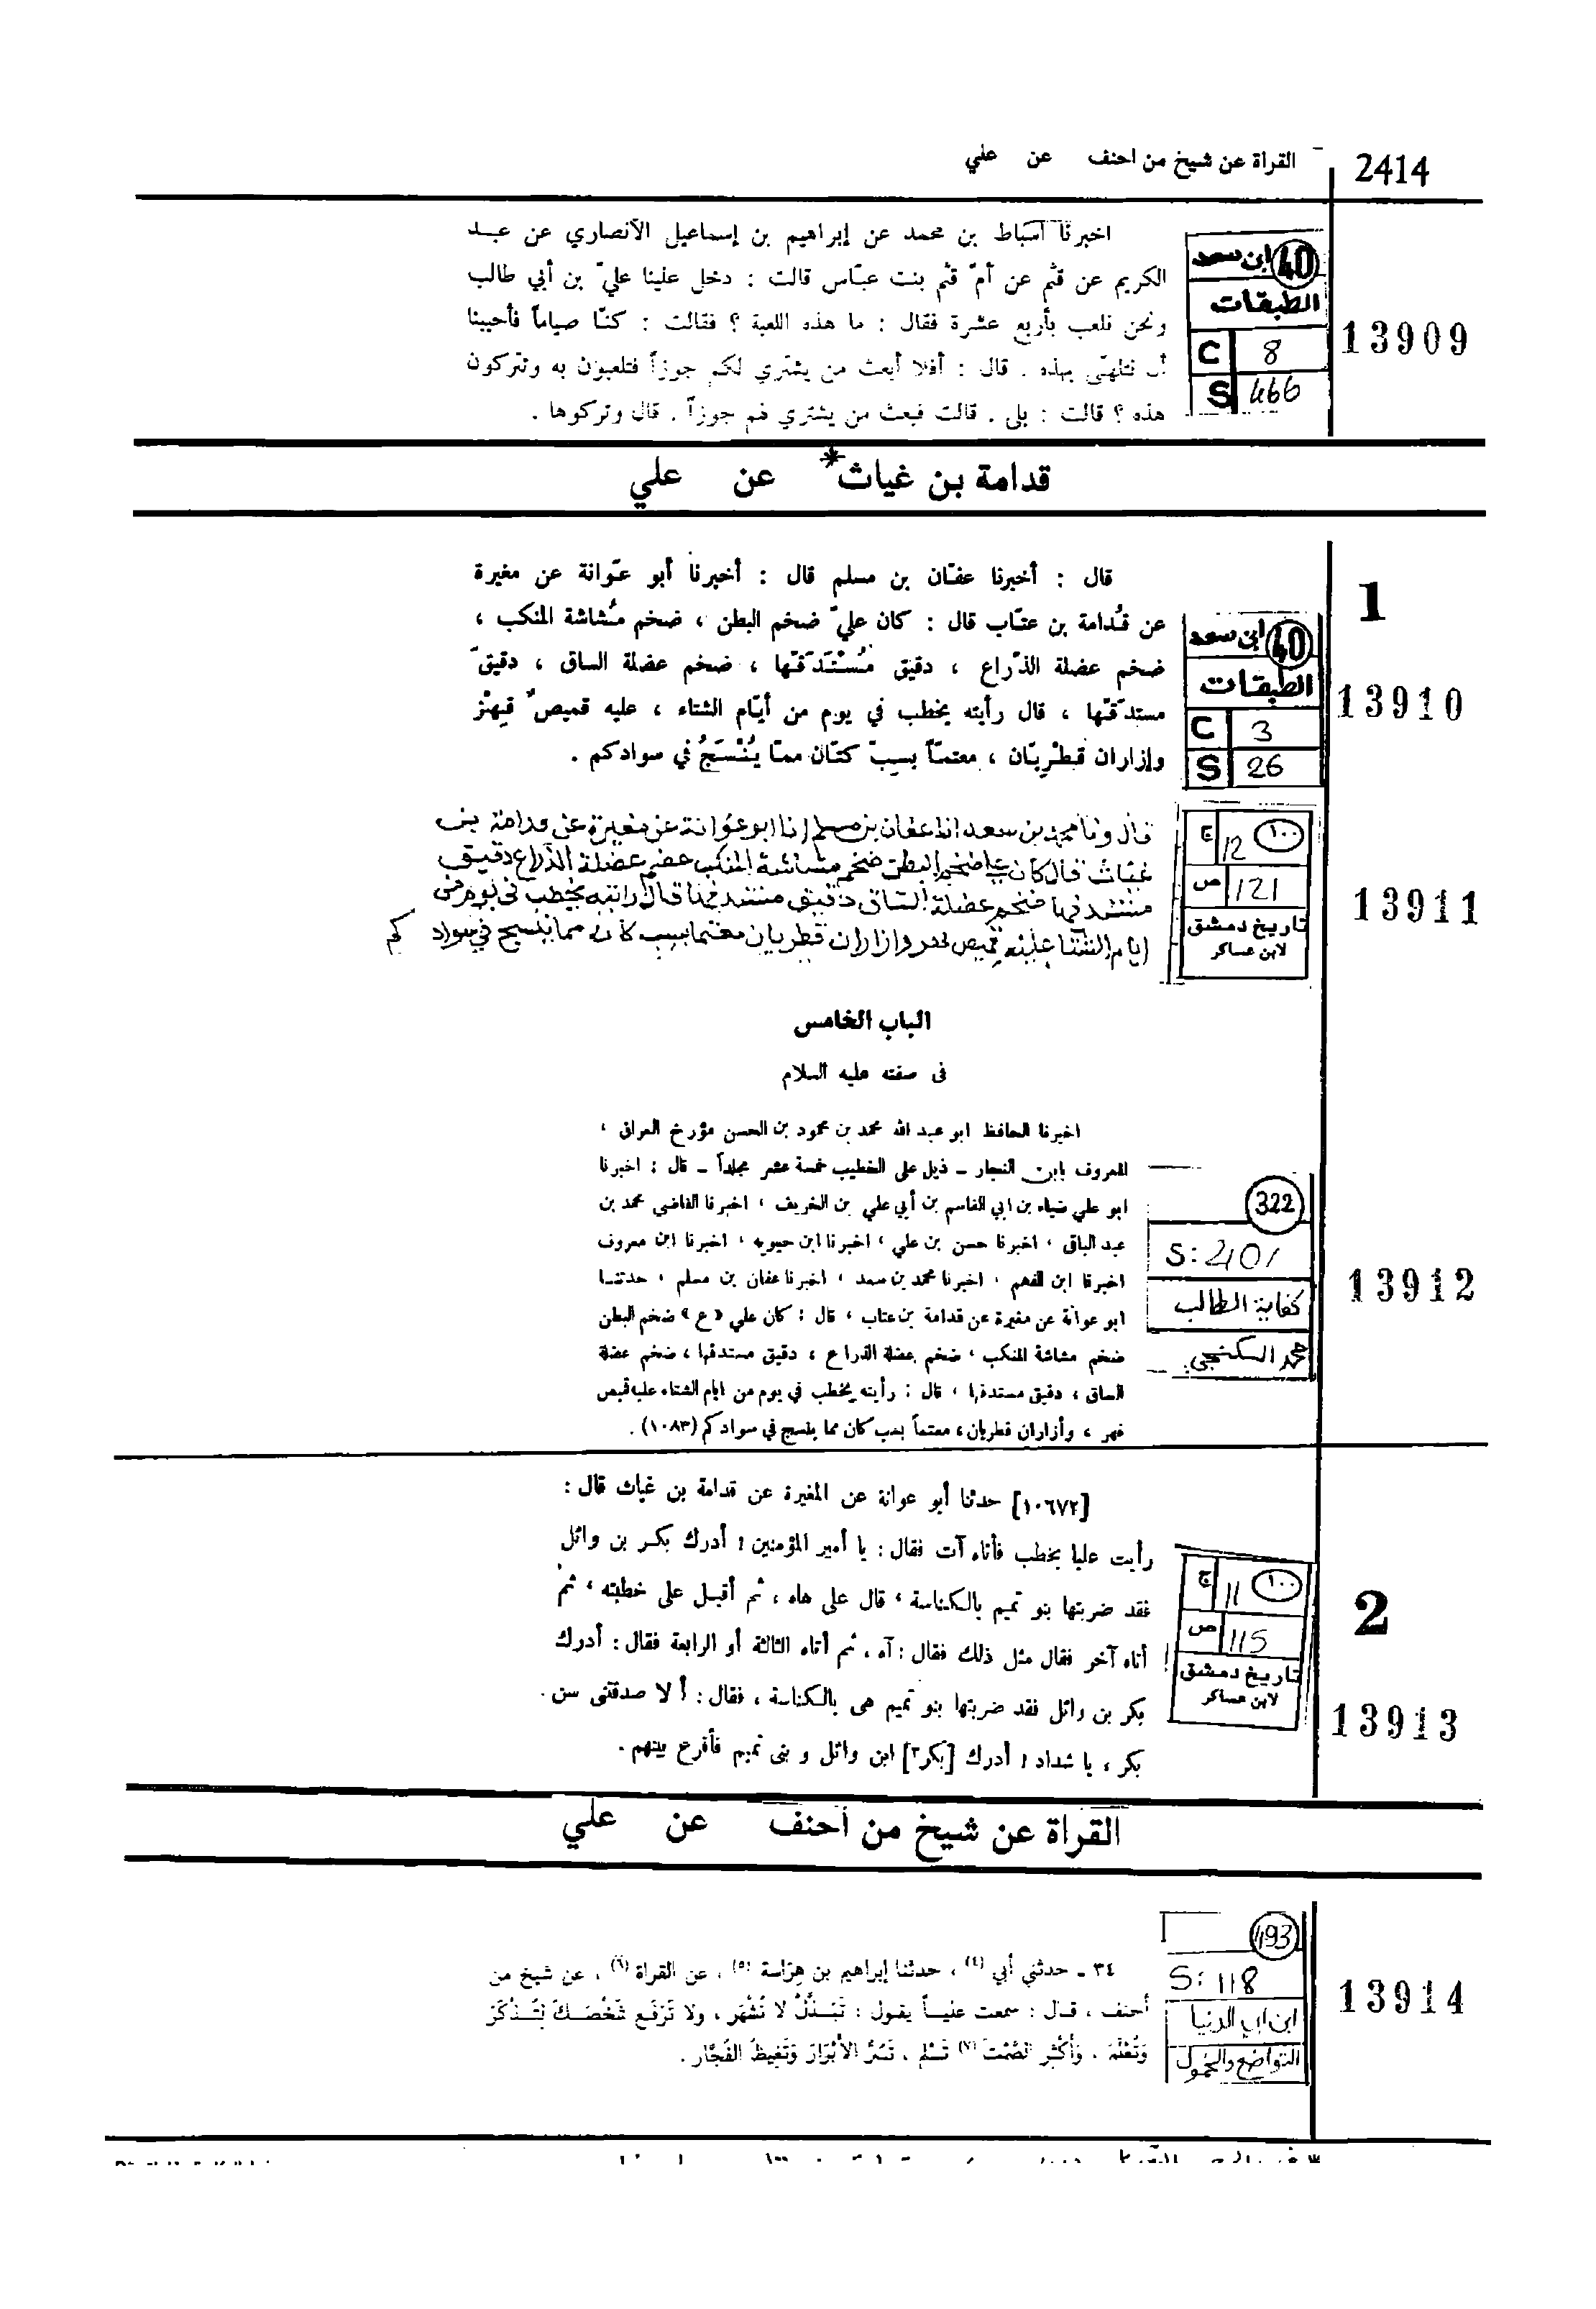 2414
القراة عن شيخ من احنف عن علي
13909
40 ابن سعد
الطبقات
C 8
S 466
اخبرنا أسباط بن محمد عن إبراهيم بن إسماعيل الأنصاري عن عبد
الكريم عن قثم عن أمّ قثم بنت عبّاس قالت : دخل علينا عليّ بن أبي طالب
ونحن نلعب بأربع عشرة فقال : ما هذه اللعبة ؟ فقالت : كنّا صياماً فأحببنا
أن نتلهّى بهذه . قال : أفلا أبعث من يشتري لكم جوزاً فتلعبون به وتتركون
هذه ؟ قالت : بلى . قالت فبعث من يشتري لهم جوزاً . قال وتركوها .
قدامة بن غياث* عن علي
1
13910
40 ابن سعد
الطبقات
C 3
S 26
قال : أخبرنا عفّان بن مسلم قال : أخبرنا أبو عَوانة عن مغيرة
عن قُدامة بن عتّاب قال : كان عليّ ضخم البطن ، ضخم مُشاشة المنكب ،
ضخم عضلة الذّراع ، دقيق مُسْتَدَقّها ، ضخم عضلة الساق ، دقيقّ
مستدقّها ، قال رأيته يخطب في يوم من أيّام الشتاء ، عليه قميصُ قِهْز
وإزاران قِطْرِيّان ، معتمّاً بسِبّ كتّان ممّا يُنْسَجُ في سوادكم .
13911
١٠٠ ج 12
ص 121
تاريخ دمشق
لابن عساكر
قال ونا محمد بن سعد انا عفان بن مسلم انا ابو عوانة عن مغيرة عن قدامة بن
غياث قال كان علي ضخم البطن ضخم مشاشة المنكب ضخم عضلة الذراع دقيق
مستدقها ضخم عضلة الساق دقيق مستدقها قال رايته يخطب في يوم من
ايام الشتا عليه قميص وازاران قطريان معتما بسب كان مما ينسج في سوادكم
الباب الخامس
في صفته عليه السلام
13912
322
S: 2401
كفاية الطالب
محمد السكنجي
اخبرنا الحافظ ابو عبد الله محمد بن محمود بن الحسن مؤرخ العراق ،
المعروف بابن النجار – ذيل على الخطيب خمسة عشر مجلداً – قال : اخبرنا
ابو علي ضياء بن ابي القاسم بن أبي علي بن الخريف ، اخبرنا القاضي محمد بن
عبد الباقي ، اخبرنا حسن بن علي ، اخبرنا ابن حيويه ، اخبرنا ابن معروف
اخبرنا ابن الفهم ، اخبرنا محمد بن سعد ، اخبرنا عفان بن مسلم ، حدثنا
ابو عوانة عن مغيرة عن قدامة بن عتاب ، قال : كان علي «ع» ضخم البطن
ضخم مشاشة المنكب ، ضخم عضلة الذراع ، دقيق مستدقها ، ضخم عضلة
الساق ، دقيق مستدقها ، قال : رأيته يخطب في يوم من ايام الشتاء عليه قميص
قهر ، وأزاران قطريان ، معتماً بسب كان مما ينسج في سوادكم (١٠٨٣) .
2
13913
١٠٠ ج 11
ص 115
تاريخ دمشق
لابن عساكر
[١٠٦٧٢] حدثنا أبو عوانة عن المغيرة عن قدامة بن غياث قال :
رأيت عليا يخطب فأتاه آت فقال : يا أمير المؤمنين ! أدرك بكر بن وائل
فقد ضربتها بنو تميم بالكناسة ، قال على هاه ، ثم أقبل على خطبته ، ثم
أتاه آخر فقال مثل ذلك فقال : آه ، ثم أتاه الثالثة أو الرابعة فقال : أدرك
بكر بن وائل فقد ضربتها بنو تميم هى بالكناسة ، فقال : أ لا صدقتنى سن
بكر ، يا شداد ! أدرك [بكر٣] ابن وائل و بنى تميم فأفرع بينهم .
القراة عن شيخ من أحنف عن علي
13914
493
S: 118
ابن ابي الدنيا
التواضع والخمول
٣٤ ـ حدثني أبي (٤) ، حدثنا إبراهيم بن هِرَاسة (٥) ، عن القراة (٦) ، عن شيخ من
أحنف ، قال : سمعت علياً يقول : تَبَذَّلْ لا تُشْهَر ، ولا تَرْفَع شَخْصَكَ لِتُذْكَرَ
وَتُعْلَمَ ، وَأَكْثِرِ الصَّمْتَ (٧) تَسْلم ، تَسُرُّ الأَبْرَارَ وَتَغِيظُ الفُجَّار .